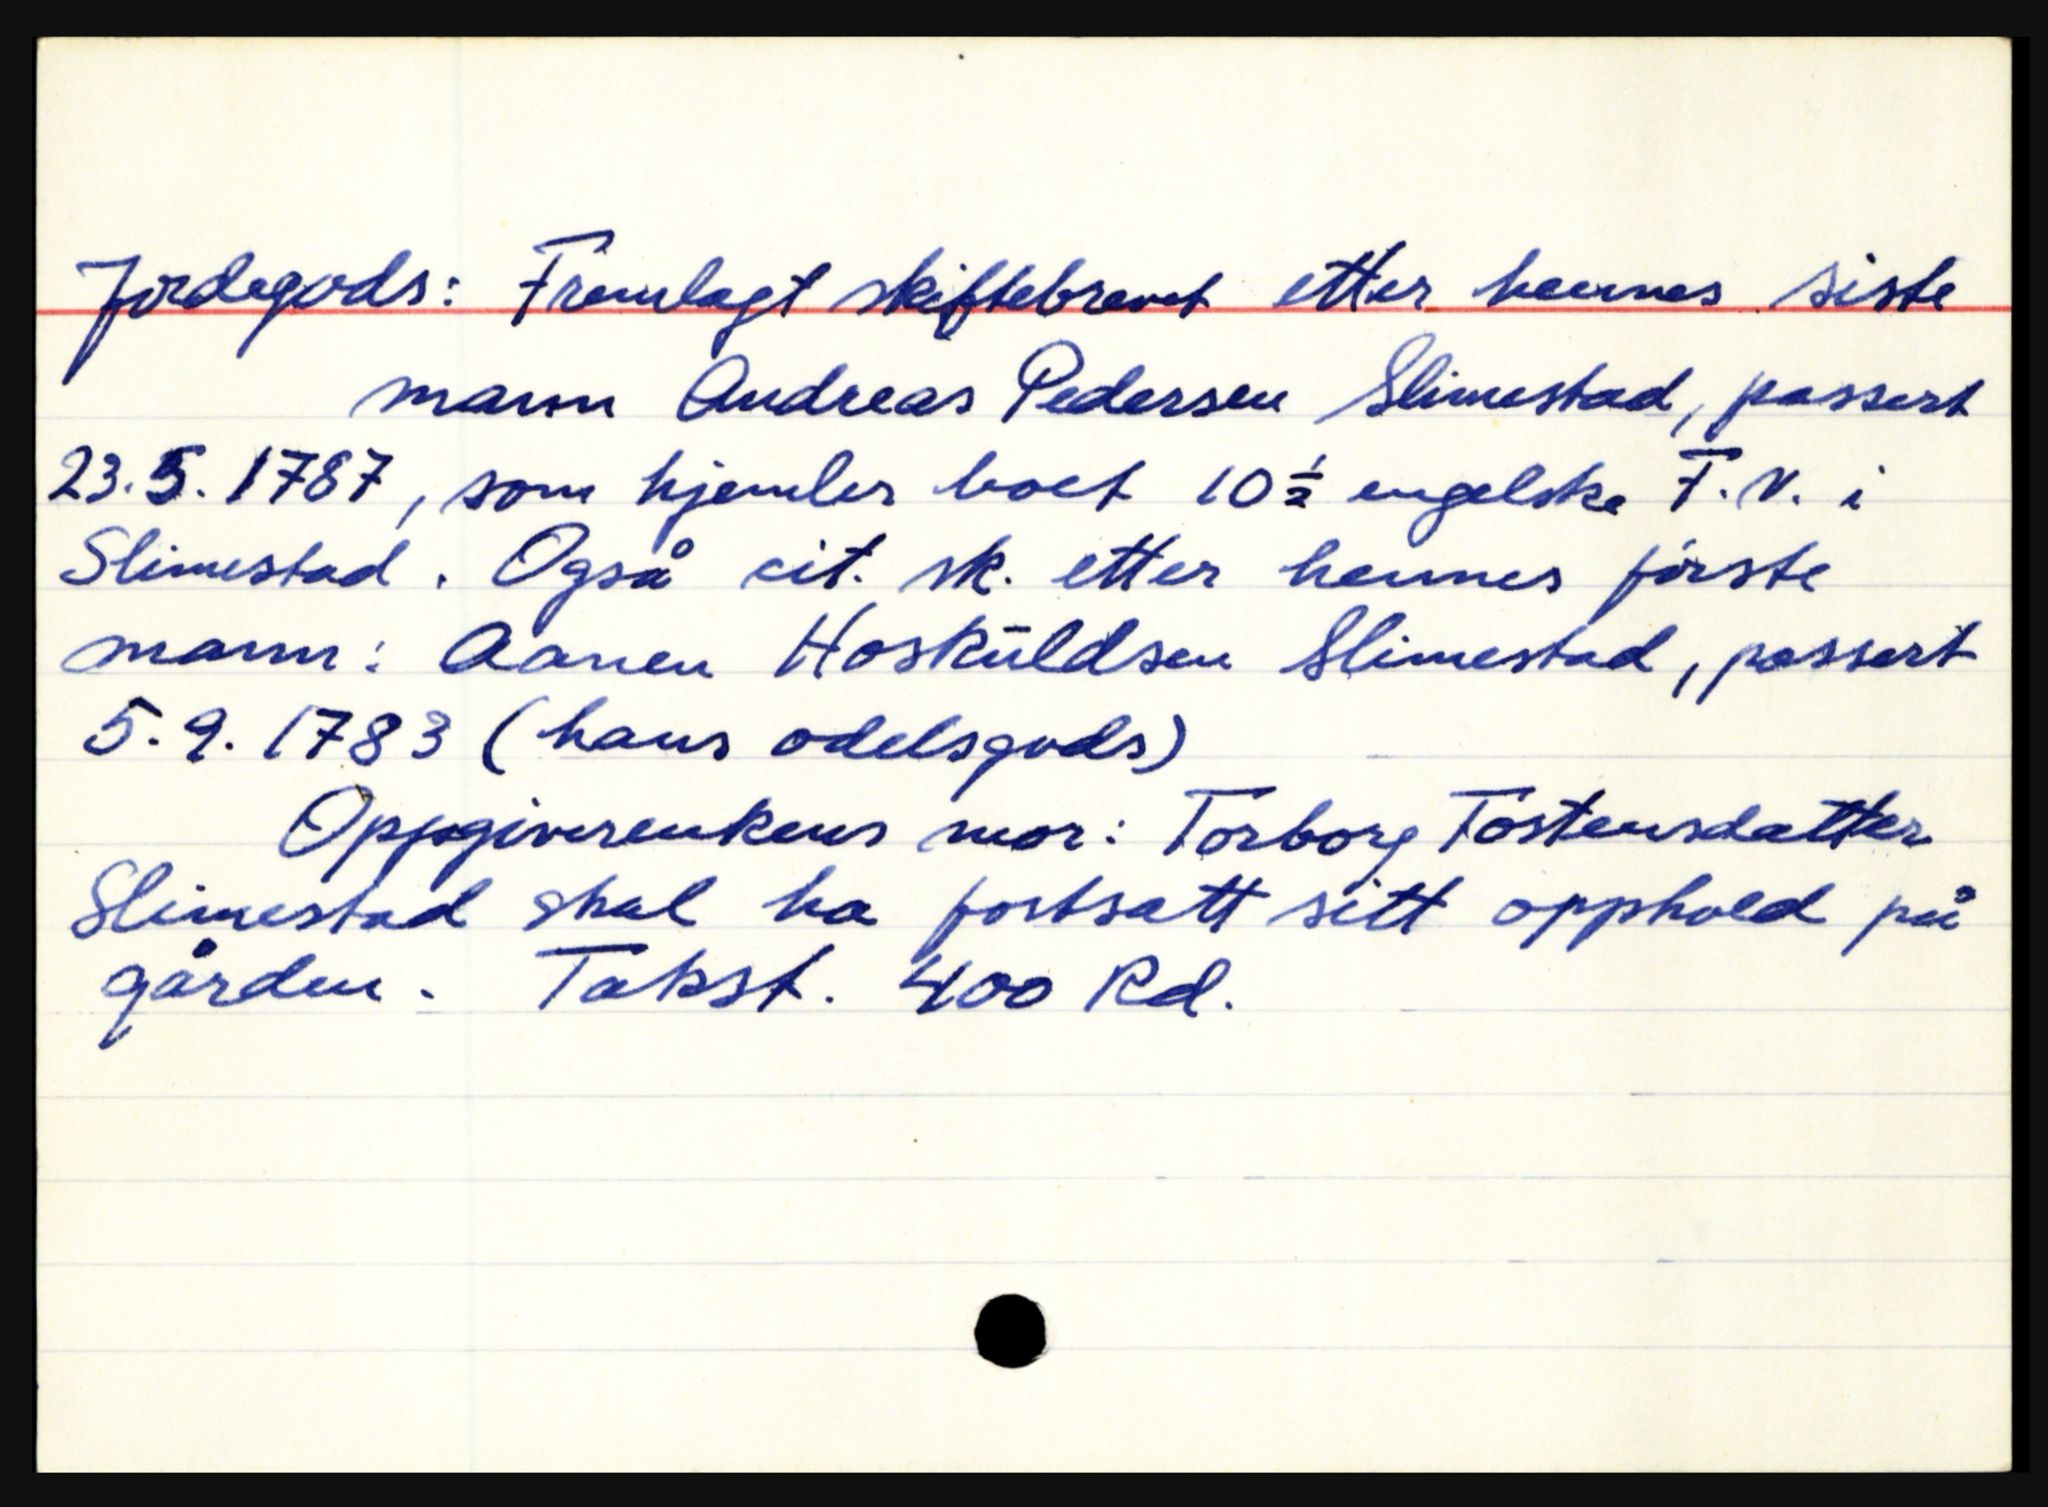 Jordegods: Fremlagt skiftebrevet etter hennes siste
mann Andreas Pedersen Slimestad, passert
23.5.1787, som hjemler boet 10½ engelske F.V. i
Slimestad. Også cit. sk. etter hennes første
mann: Aanen Hoskūldsen Slimestad, passert
5.9.1783 (hans odelsgods)
Oppgiverenkens mor: Torborg Tostensdatter
Slimestad skal ha fortsatt sitt opphold på
gården. Takst. 400 Rd.